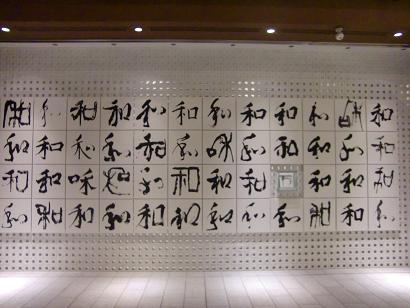 和和和和和和和和和和和
和和和和和和咊和和和和和
和和咊和和和和和和和
和和和和和和和和和和和和